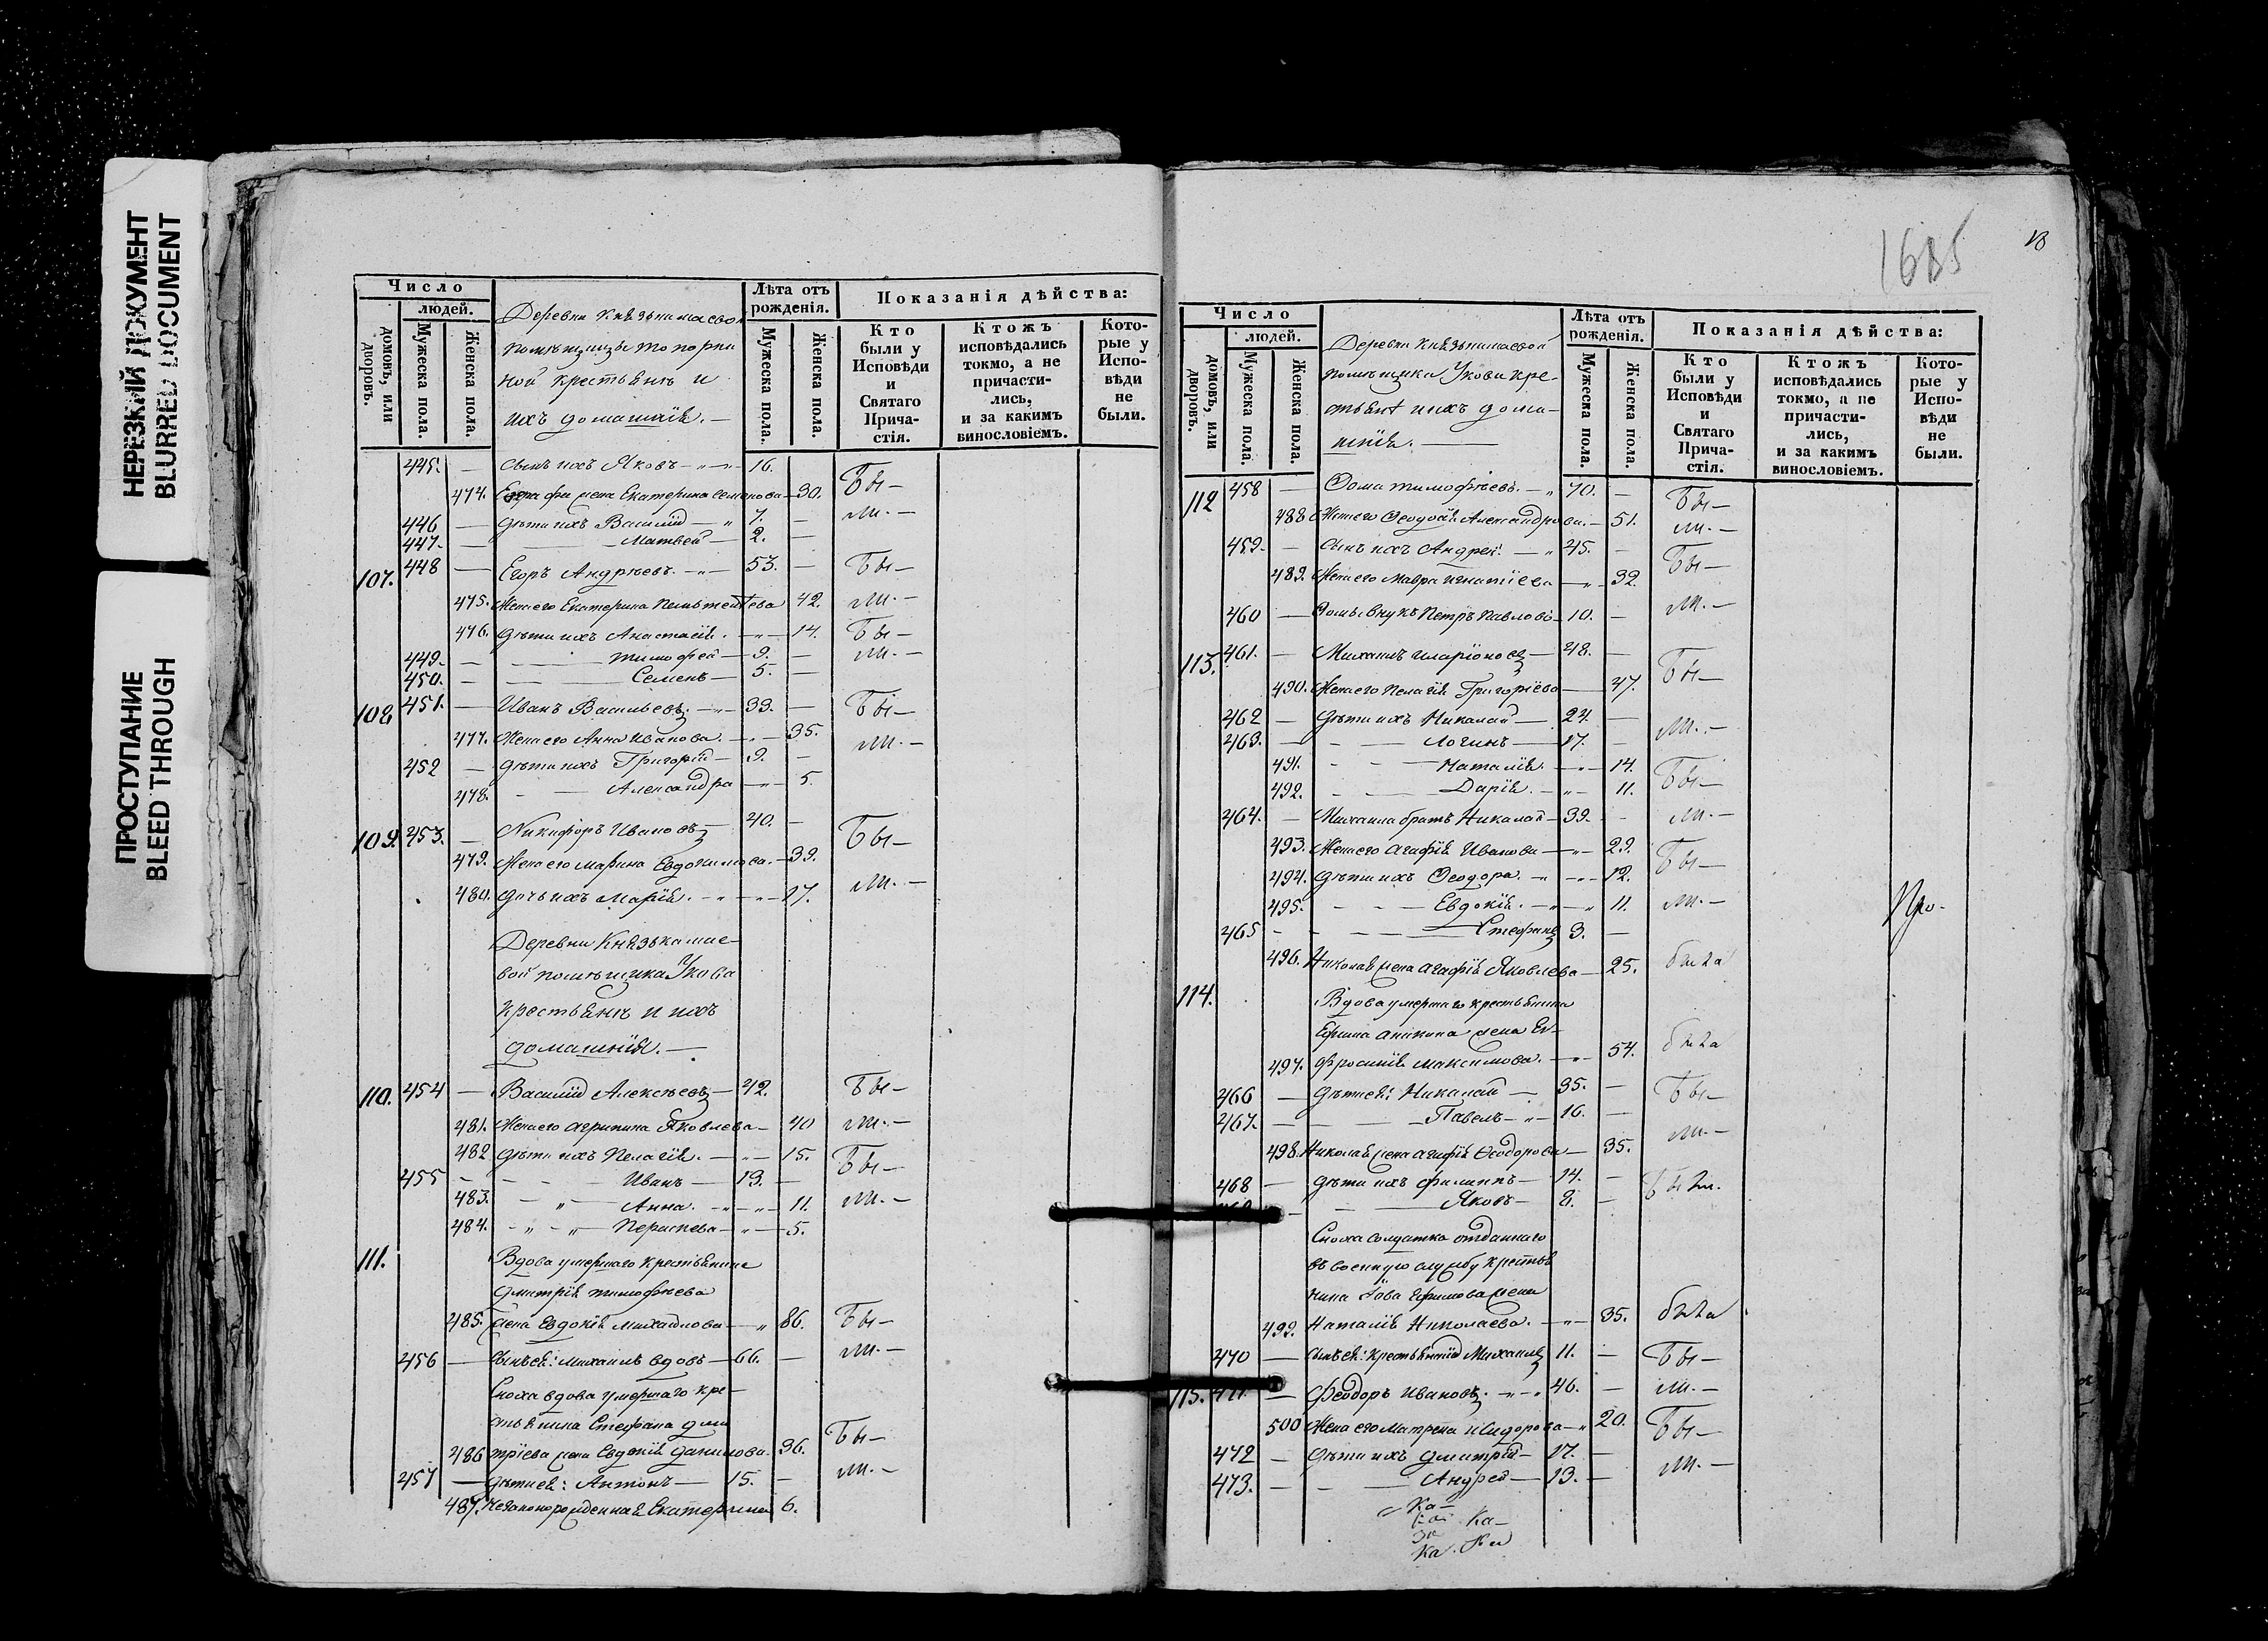 НЕРЕЗКИЙ ДОКУМЕНТ
BLURRED DOCUMENT
ПРОСТУПАНИЕ
BLEED THROUGH
Число
людей.
домовъ, или дворовъ.
Мужеска пола.
Женска пола.
Деревни Князькимаевой
помѣщицы Топорни
ной крестьянъ и
ихъ домашнія. —
Лѣта отъ рожденія.
Мужеска пола.
Женска пола.
Показанія дѣйства:
Кто были у Исповѣди и Святаго Прича-стія.
Ктожъ исповѣдались токмо, а не причасти-лись, и за какимъ винословіемъ.
Кото-рые у Испо-вѣди не были.
445. — сынъ ихъ Яковъ — 16.
474. жена Екатерина Семенова — 30. Бы—
446 — дѣти ихъ Василій — 7. — ли. —
447. — — Матвей — 2. —
107. 448 — Егоръ Андрѣевъ. — 53. — Бы—
475. Жена его Екатерина 42. ли. —
476. дѣти ихъ Анастасія. — 14. Бы—
449. — — Тимофей — 9. — ли. —
450. — — Семенъ — 5. —
108 451. — Иванъ Васильевъ. — 39. — Бы—
477. Жена его Анна Иванова. — 35. ли. —
452 — дѣти ихъ Григорій — 9. —
478. — Александра — 5.
109. 453. — Никифоръ Ивановъ — 40. — Бы—
479. Жена его Марина Евдокимова. — 39.
480. дочь ихъ Марія. — 17. ли. —
Деревни Князькамае-
вой помѣщика Укова
крестьянъ и ихъ
домашнія. —
110. 454 — Василій Алексѣевъ — 42. Бы—
481. Жена его Агрипина Яковлева — 40 ли. —
482 дѣти ихъ Пелагія. — 15. Бы—
455 — Иванъ — 13. —
483. — Анна. — 11. ли. —
484. — — 5.
111. Вдова умершаго крестьянина
Дмитрія Тимофѣева
485. жена Евдокія Михайлова — 86. Бы—
456 — Сынъ ей: Михаилъ вдовъ — 66. — ли. —
Сноха вдова умершаго кре-
стьянина Стефана Дми
486 тріева жена Евдокія Данилова. 36. Бы—
457 — дѣти ей: Антонъ — 15. — ли. —
487. незаконорожденная Екатерина 6.
1685
18
Число
людей.
домовъ, или дворовъ.
Мужеска пола.
Женска пола.
Деревни Князькимаевой
помѣщика Укова кре-
стьянъ и ихъ дома-
шнія. —
Лѣта отъ рожденія.
Мужеска пола.
Женска пола.
Показанія дѣйства:
Кто были у Исповѣди и Святаго Прича-стія.
Ктожъ исповѣдались токмо, а не причасти-лись, и за какимъ винословіемъ.
Кото-рые у Испо-вѣди не были.
112 458 — Ѳома Тимофѣевъ. — 70. — Бы—
488 Жена его Ѳеодосія Александрова. — 51. ли. —
459. — Сынъ ихъ Андрей. — 25. — Бы—
489. Жена его Мавра Игнатіева — 32
460 — Ѳомы внукъ Петръ Павловъ — 10. — ли. —
113. 461. — Михаилъ Иларіоновъ — 48. — Бы—
490. Жена его Пелагія Григоріева — 47.
462 — дѣти ихъ Николай — 24. — ли. —
463. — — Логинъ — 17. —
491. — Наталія. — 14. Бы—
492. — Дарія. — 11.
464. — Михаила братъ Николай — 39. — ли. —
493. Жена его Агафія Иванова — 29.
494. дѣти ихъ Ѳеодора. — 12. Бы—
495. — Евдокія. — 11. ли. —
465 — Стефанъ 3. —
496. Николая жена Агафія Яковлева — 25. была
114. Вдова умершаго крестьянина
Ефима Аникина жена Ев-
497. фросинія Максимова. — 54. была
466 — дѣти ей: Николай — 35. — Бы—
467. — — Павелъ — 16. —
498. Николая жена Агафія Ѳеодорова — 35. ли. —
468 — дѣти ихъ Филиппъ — 14. — были.
— Яковъ — 8. —
Сноха солдатка отданнаго
въ военную службу крестья
нина Іова Ефимова жена
499. Наталія Николаева. — 35. была
470 — Сынъ ей: крестьянинъ Михаилъ 11. — Бы—
115. 471 — Феодоръ Ивановъ. — 46. — ли. —
500 Жена его Матрена Исидорова — 20. Бы—
472 — дѣти ихъ Дмитрій — 17. —
473. — — Андрей — 13. — ли. —
Ка—
Ка—
Ка.